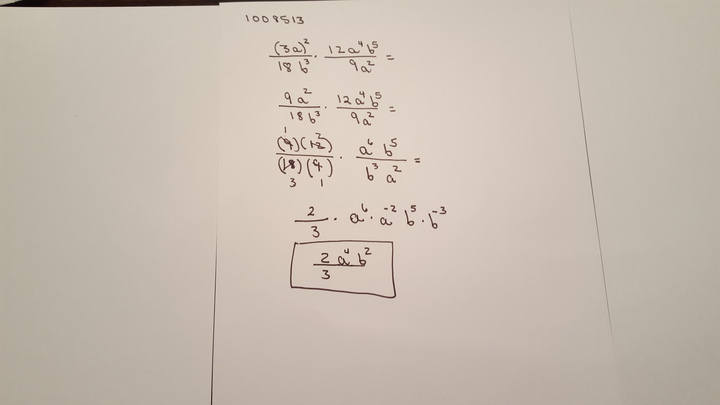 1008513
(3a)²/18b³ · 12a⁴b⁵/9a² =
9a²/18b³ · 12a⁴b⁵/9a² =
1 2
(9)(12)/(18)(9) · a⁶b⁵/b³a² =
3 1
2/3 · a⁶ · a⁻² b⁵ · b⁻³
2/3 a⁴b²